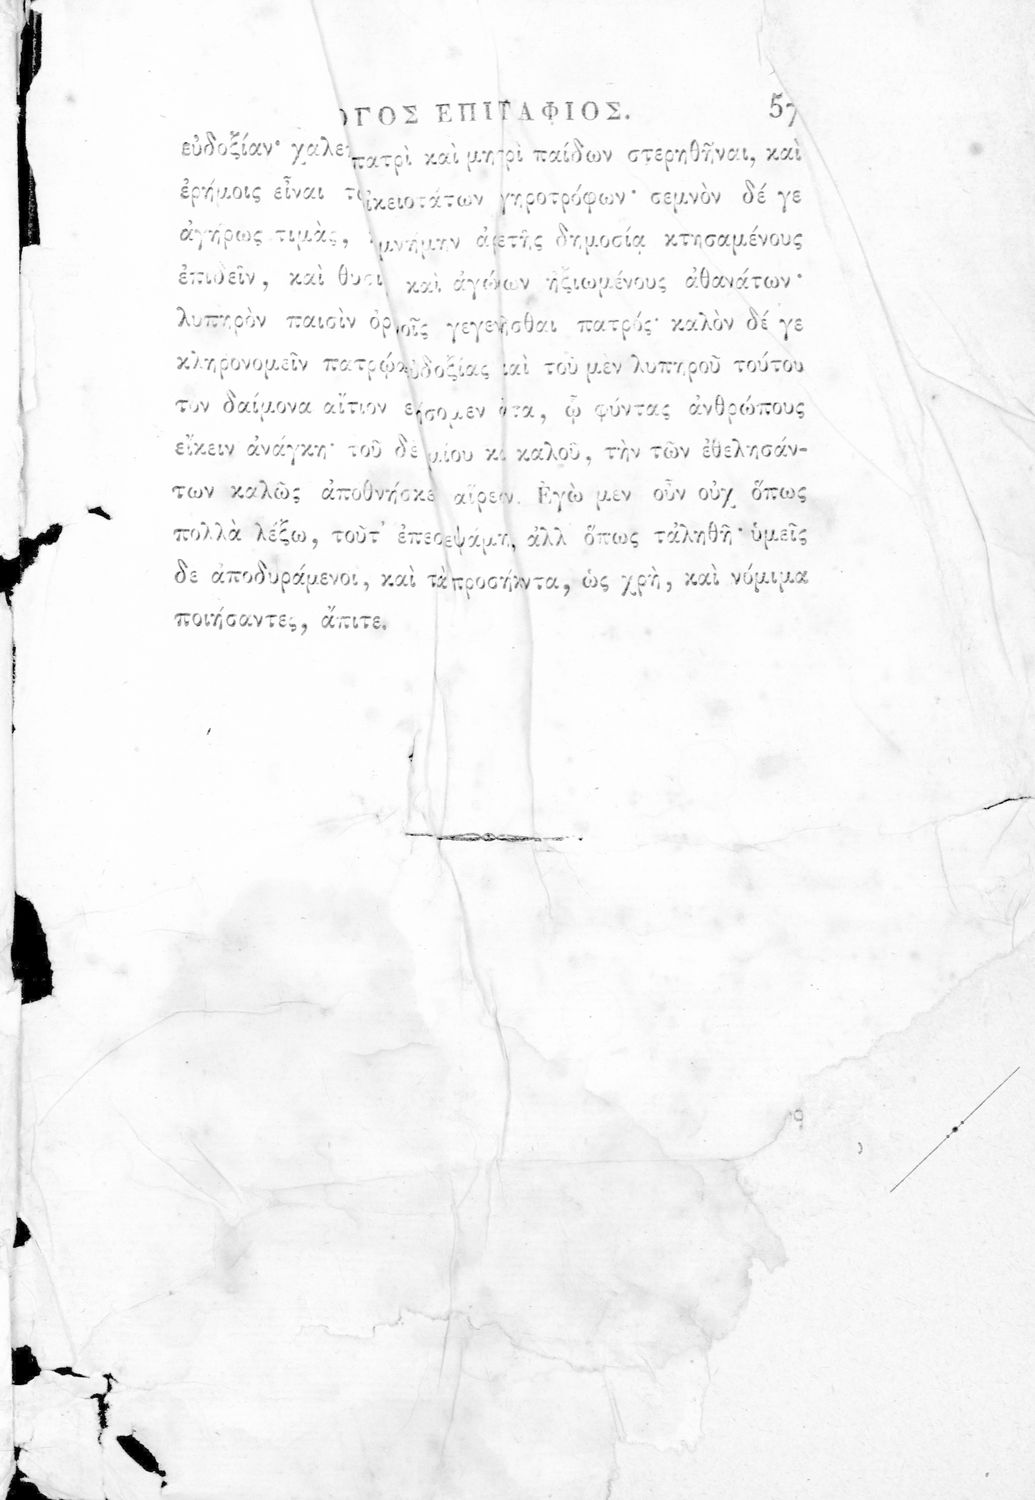 ΟΓΟΣ ΕΠΙΤΑΦΙΟΣ. 57
εὐδοξίαν· χαλε πατρὶ καὶ μητρὶ παίδων στερηθῆναι, καὶ
ἐρήμοις εἶναι τ ἰκειοτάτων γηροτρόφων· σεμνὸν δέ γε
ἀγήρως τιμὰς, μνήμην ἀρετῆς δημοσίᾳ κτησαμένους
ἐπιδεῖν, καὶ θυσι καὶ ἀγώνων ἠξιωμένους ἀθανάτων·
λυπηρὸν παισὶν ὀρ οῖς γεγενῆσθαι πατρός· καλὸν δέ γε
κληρονομεῖν πατρῴα ὐδοξίας καὶ τοῦ μὲν λυπηροῦ τούτου
τὸν δαίμονα αἴτιον ε ήσομεν ὄντα, ᾧ φύντας ἀνθρώπους
εἴκειν ἀνάγκη· τοῦ δὲ μίου κ καλοῦ, τὴν τῶν ἐθελησάν-
των καλῶς ἀποθνήσκε αἵρεσιν. Ἐγὼ μὲν οὖν οὐχ ὅπως
πολλὰ λέξω, τοῦτ' ἐπεσεψάμην, ἀλλ ὅπως τἀληθῆ· ὑμεῖς
δὲ ἀποδυράμενοι, καὶ τὰ προσήκντα, ὡς χρὴ, καὶ νόμιμα
ποιήσαντες, ἄπιτε.